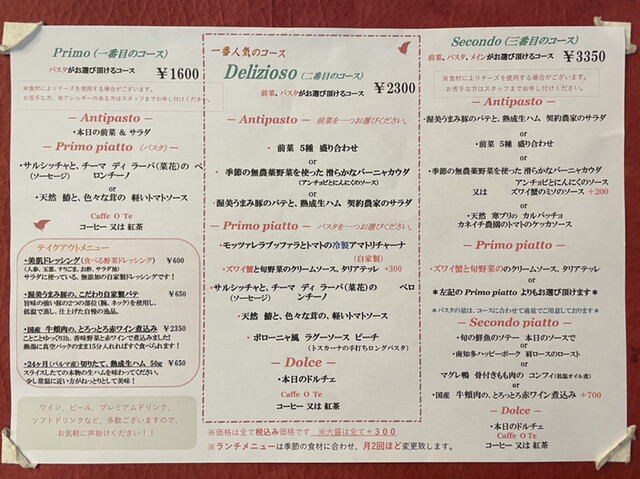 Primo (一番目のコース)
パスタがお選び頂けるコース ￥1600
※食材によりチーズを使用する場合がございます。
お苦手な方、他アレルギーのある方はスタッフまでお申し付けください。
- Antipasto -
・本日の前菜 & サラダ
- Primo piatto (パスタ) -
・サルシッチャと、チーマ ディ ラーパ(菜花)の ペペロンチーノ
(ソーセージ)
or
・天然 鯖と、色々な茸の 軽いトマトソース
Caffe O Te
コーヒー 又は 紅茶
テイクアウトメニュー
・美肌ドレッシング(食べる野菜ドレッシング) ￥600
(人参、玉葱、すりごま、お酢、サラダ油)
サラダに使っている、無添加の自家製ドレッシングです！
・渥美うまみ豚の、こだわり自家製パテ ￥650
旨味の強い豚の2つの部位(腕、ネック)を使用し、
低温で蒸し、仕上げた自慢の逸品。
・国産 牛頬肉の、とろっとろ赤ワイン煮込み ￥2350
ことことゆっくり3h、香味野菜と赤ワインで煮込みました！
熱湯に真空パックのまま15分入れればすぐ食べられます！
・24ヶ月(パルマ産)切りたて、熟成生ハム 50g ￥650
スライスしたての本物の生ハムを味わってください。
少し常温に近い方がねっとりとして美味！
ワイン、ビール、プレミアムドリンク、
ソフトドリンクなど、多数ございますので、
お気軽に声掛けください！！
一番人気のコース
Delizioso (二番目のコース)
前菜、パスタがお選び頂けるコース ￥2300
- Antipasto - 前菜を一つお選びください。
・前菜 5種 盛り合わせ
or
・季節の無農薬野菜を使った 滑らかなバーニャカウダ
(アンチョビとにんにくのソース)
or
・渥美うまみ豚のパテと、熟成生ハム 契約農家のサラダ
- Primo piatto - パスタを一つお選びください。
・モッツァレラブッファラとトマトの冷製アマトリチャーナ
(自家製)
・ズワイ蟹と旬野菜のクリームソース、タリアテッレ +300
・サルシッチャと、チーマ ディ ラーパ(菜花)の ペペロンチーノ
(ソーセージ)
or
天然 鯖と、色々な茸の 軽いトマトソース
or
・ボローニャ風 ラグーソース ピーチ
(トスカーナの手打ちロングパスタ)
- Dolce -
・本日のドルチェ
Caffe O Te
コーヒー 又は 紅茶
※価格は全て税込み価格です ※大盛は全て+300
※ランチメニューは季節の食材に合わせ、月2回ほど変更致します。
Secondo (三番目のコース)
前菜、パスタ、メインがお選び頂けるコース ￥3350
※食材によりチーズを使用する場合がございます。
お苦手な方はスタッフまでお申し付けください。
- Antipasto -
・渥美うまみ豚のパテと、熟成生ハム 契約農家のサラダ
or
・季節の無農薬野菜を使った 滑らかなバーニャカウダ
アンチョビとにんにくのソース
又は ズワイ蟹のミソのソース +200
or
・天然 寒ブリの カルパッチョ
カネイチ農園のトマトのケッカソース
- Primo piatto -
・ズワイ蟹と旬野菜のクリームソース、タリアテッレ
or
＊左記の Primo piatto よりもお選び頂けます＊
＊パスタの量は、コースに合わせて適量でご用意しております＊
- Secondo piatto -
・旬の鮮魚のソテー 本日のソースで
or
・南知多ハッピーポーク 肩ロースのロースト
or
マグレ鴨 骨付きもも肉の コンフィ(低温オイル煮)
or
・国産 牛頬肉の、とろっとろ赤ワイン煮込み +700
- Dolce -
・本日のドルチェ
Caffe O Te
コーヒー 又は 紅茶